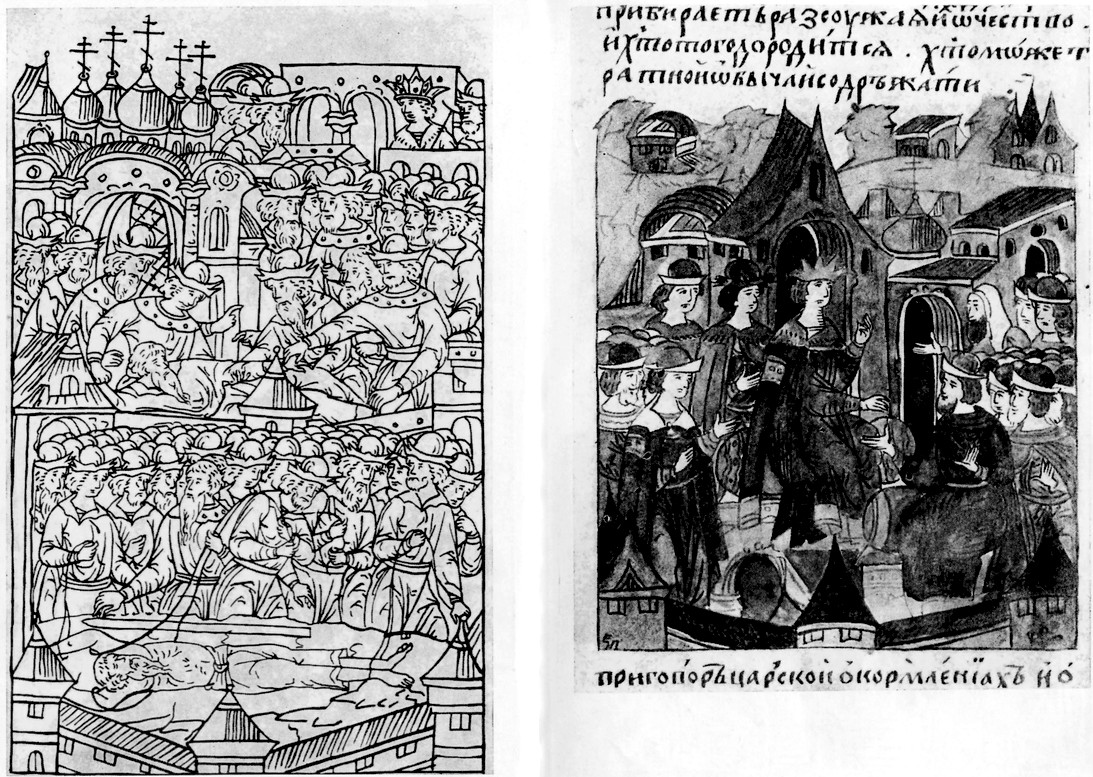 прибираетъ разсоужаѧ и ѡчество .
и хто того дородитсѧ . хто мѡжет
ратнои ѡбычаи содръжати
приговоръ царскои о кормленїахъ и о